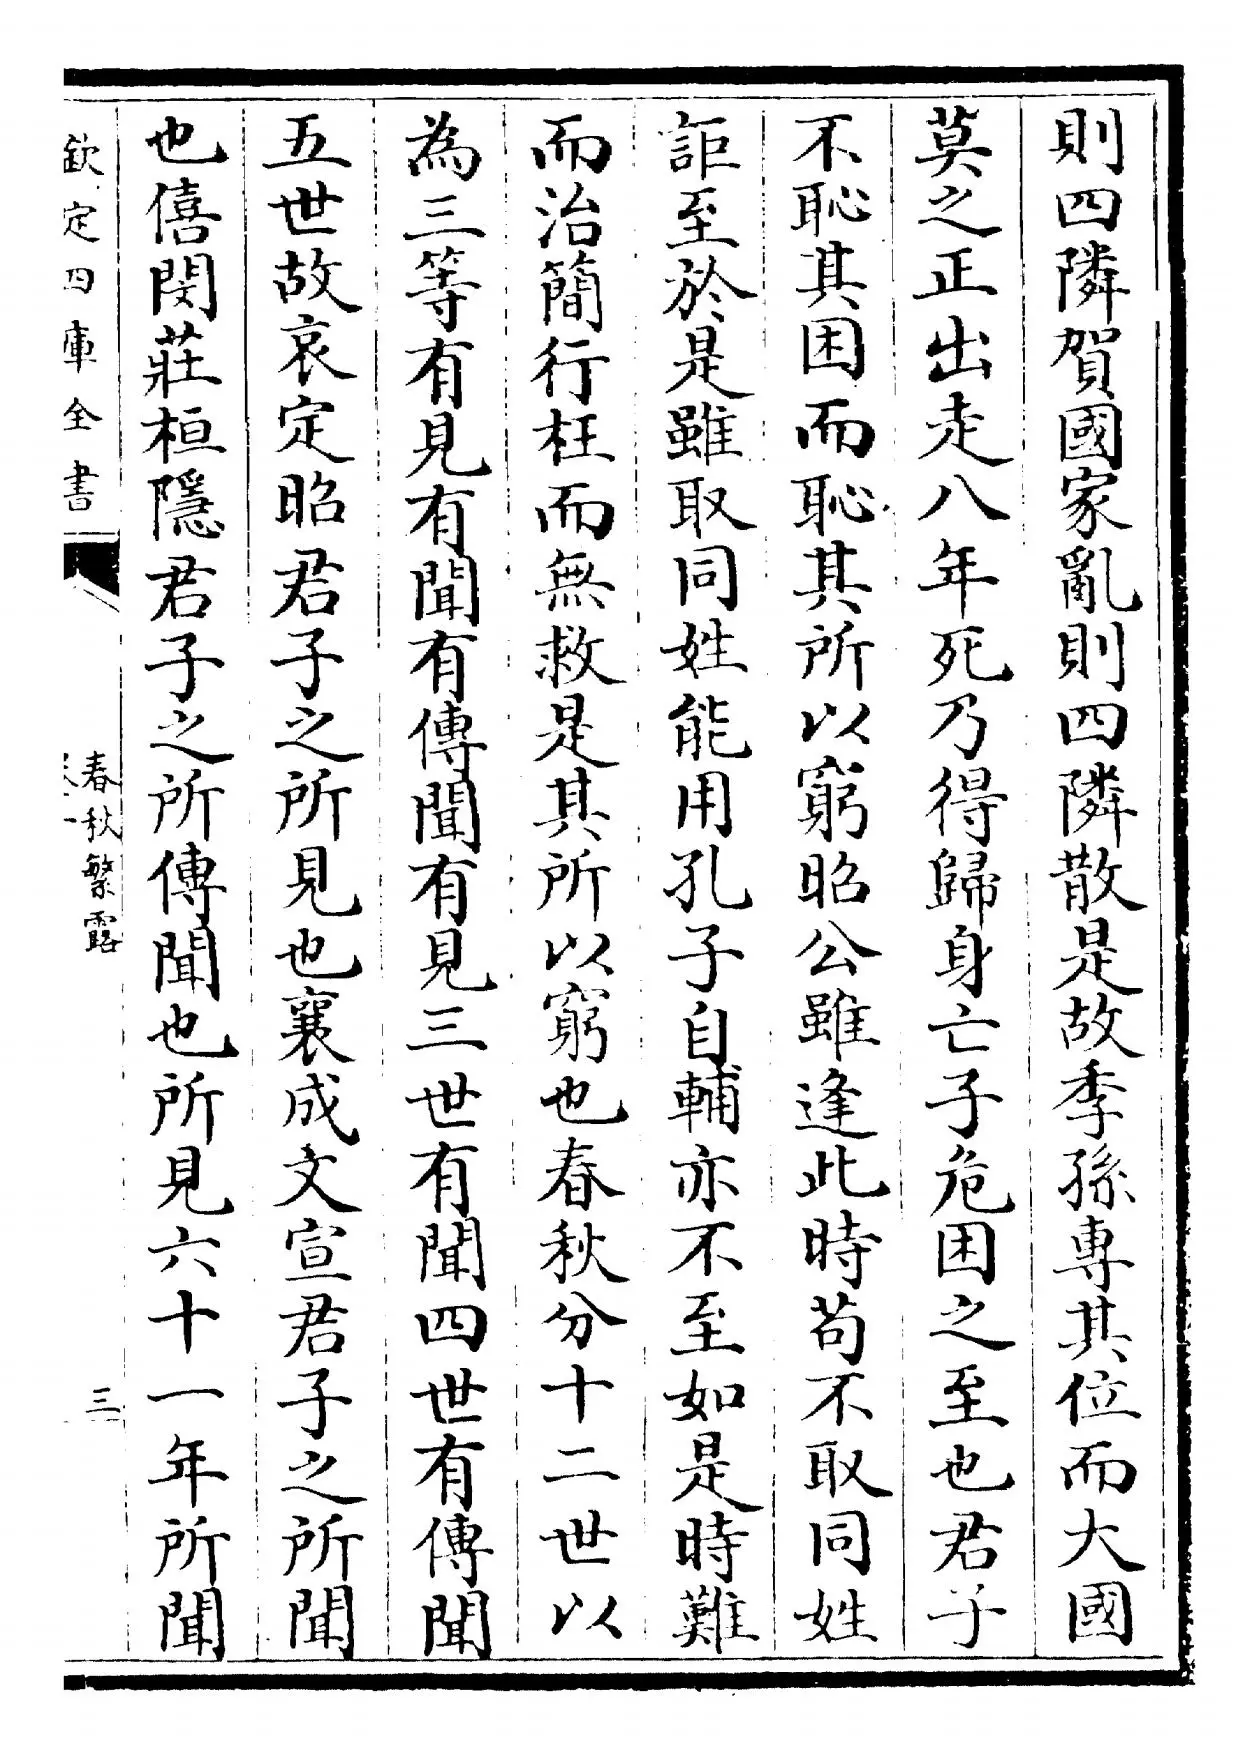 則四隣賀國家亂則四隣散是故季孫專其位而大國
莫之正出走八年死乃得歸身亡子危困之至也君子
不恥其困而恥其所以窮昭公雖逢此時苟不取同姓
詎至於是雖取同姓能用孔子自輔亦不至如是時難
而治簡行枉而無救是其所以窮也春秋分十二世以
為三等有見有聞有傳聞有見三世有聞四世有傳聞
五世故哀定昭君子之所見也襄成文宣君子之所聞
也僖閔莊桓隱君子之所傳聞也所見六十一年所聞
欽定四庫全書
春秋繁露
三